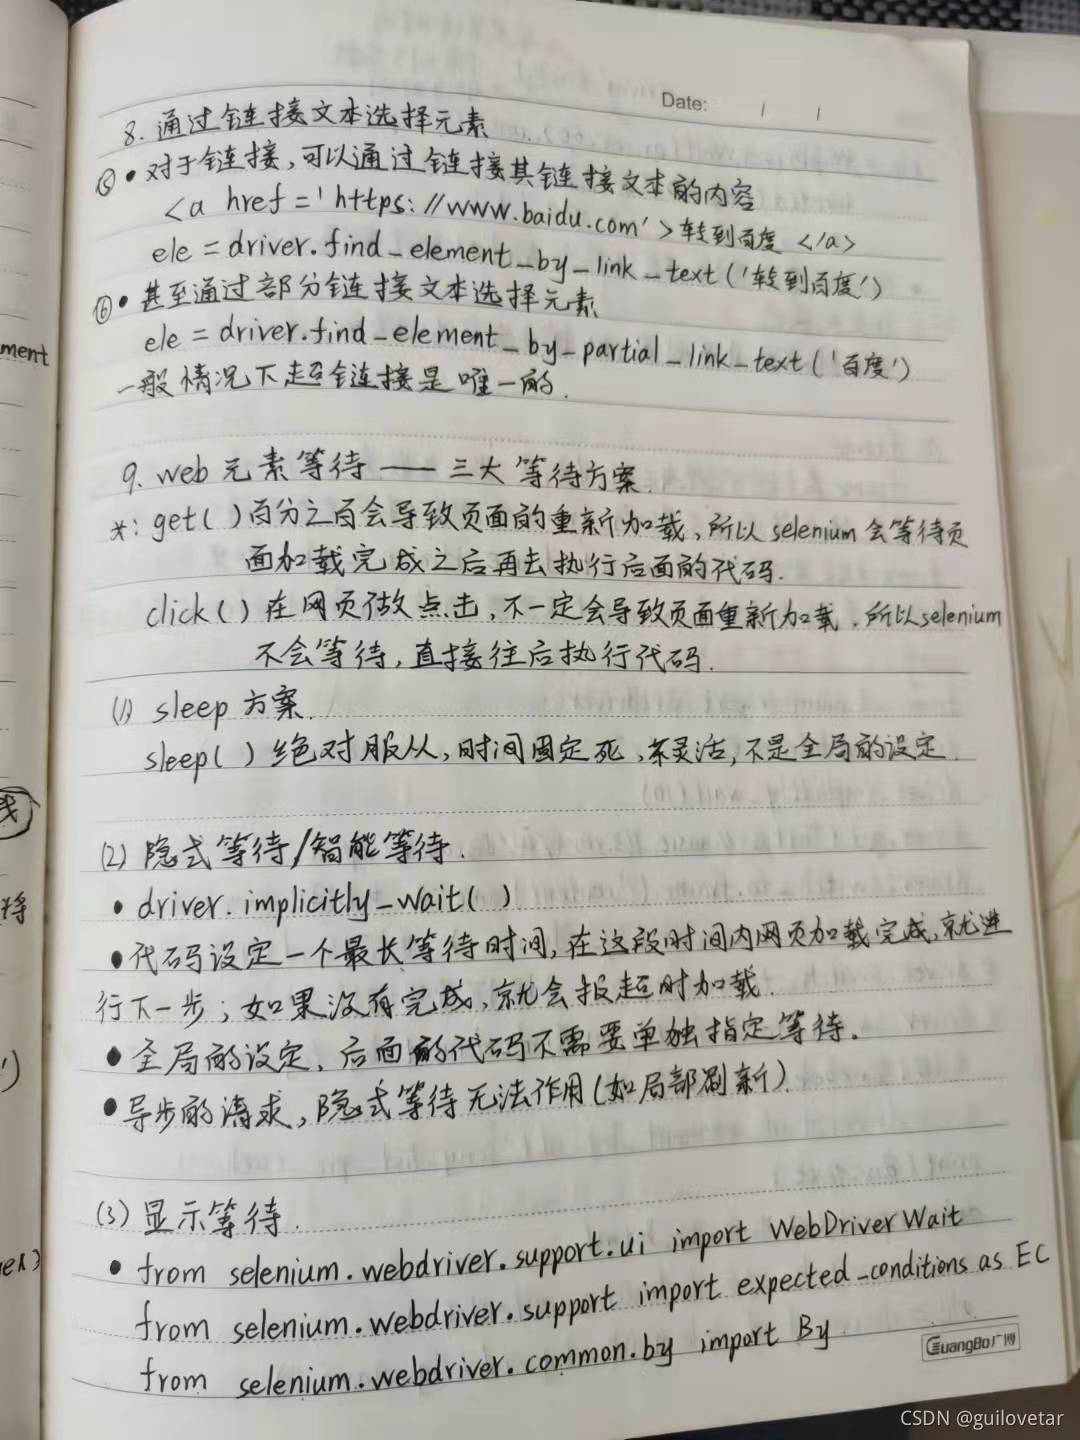 Date: / /
8. 通过链接文本选择元素
⑤ • 对于链接,可以通过链接其链接文本的内容
<a href='https://www.baidu.com'>转到百度</a>
ele = driver.find_element_by_link_text('转到百度')
⑥ • 甚至通过部分链接文本选择元素
ele = driver.find_element_by_partial_link_text('百度')
一般情况下超链接是唯一的.
9. web 元素等待 —— 三大等待方案.
*: get( ) 百分之百会导致页面的重新加载,所以 selenium 会等待页
面加载完成之后再去执行后面的代码.
click( ) 在网页做点击,不一定会导致页面重新加载.所以selenium
不会等待,直接往后执行代码.
(1) sleep 方案.
sleep( ) 绝对服从,时间固定死,不灵活,不是全局的设定.
(2) 隐式等待/智能等待.
• driver.implicitly_wait( )
• 代码设定一个最长等待时间,在这段时间内网页加载完成,就进
行下一步;如果没有完成,就会报超时加载.
• 全局的设定,后面的代码不需要单独指定等待.
• 异步的请求,隐式等待无法作用(如局部刷新).
(3) 显示等待.
• from selenium.webdriver.support.ui import WebDriverWait
from selenium.webdriver.support import expected_conditions as EC
from selenium.webdriver.common.by import By
GuangBo广博
ment
将
CSDN @guilovetar